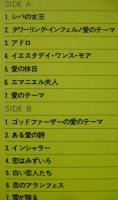 SIDE A
1. シバの女王
2. タワーリング・インフェルノ愛のテーマ
3. アドロ
4. イエスタデイ・ワンス・モア
5. 愛の休日
6. エマニエル夫人
7. 愛のテーマ
SIDE B
1. ゴッドファーザーの愛のテーマ
2. ある愛の詩
3. インシャラー
4. 恋はみずいろ
5. 白い恋人たち
6. 恋のアランフェス
7. 雪が降る